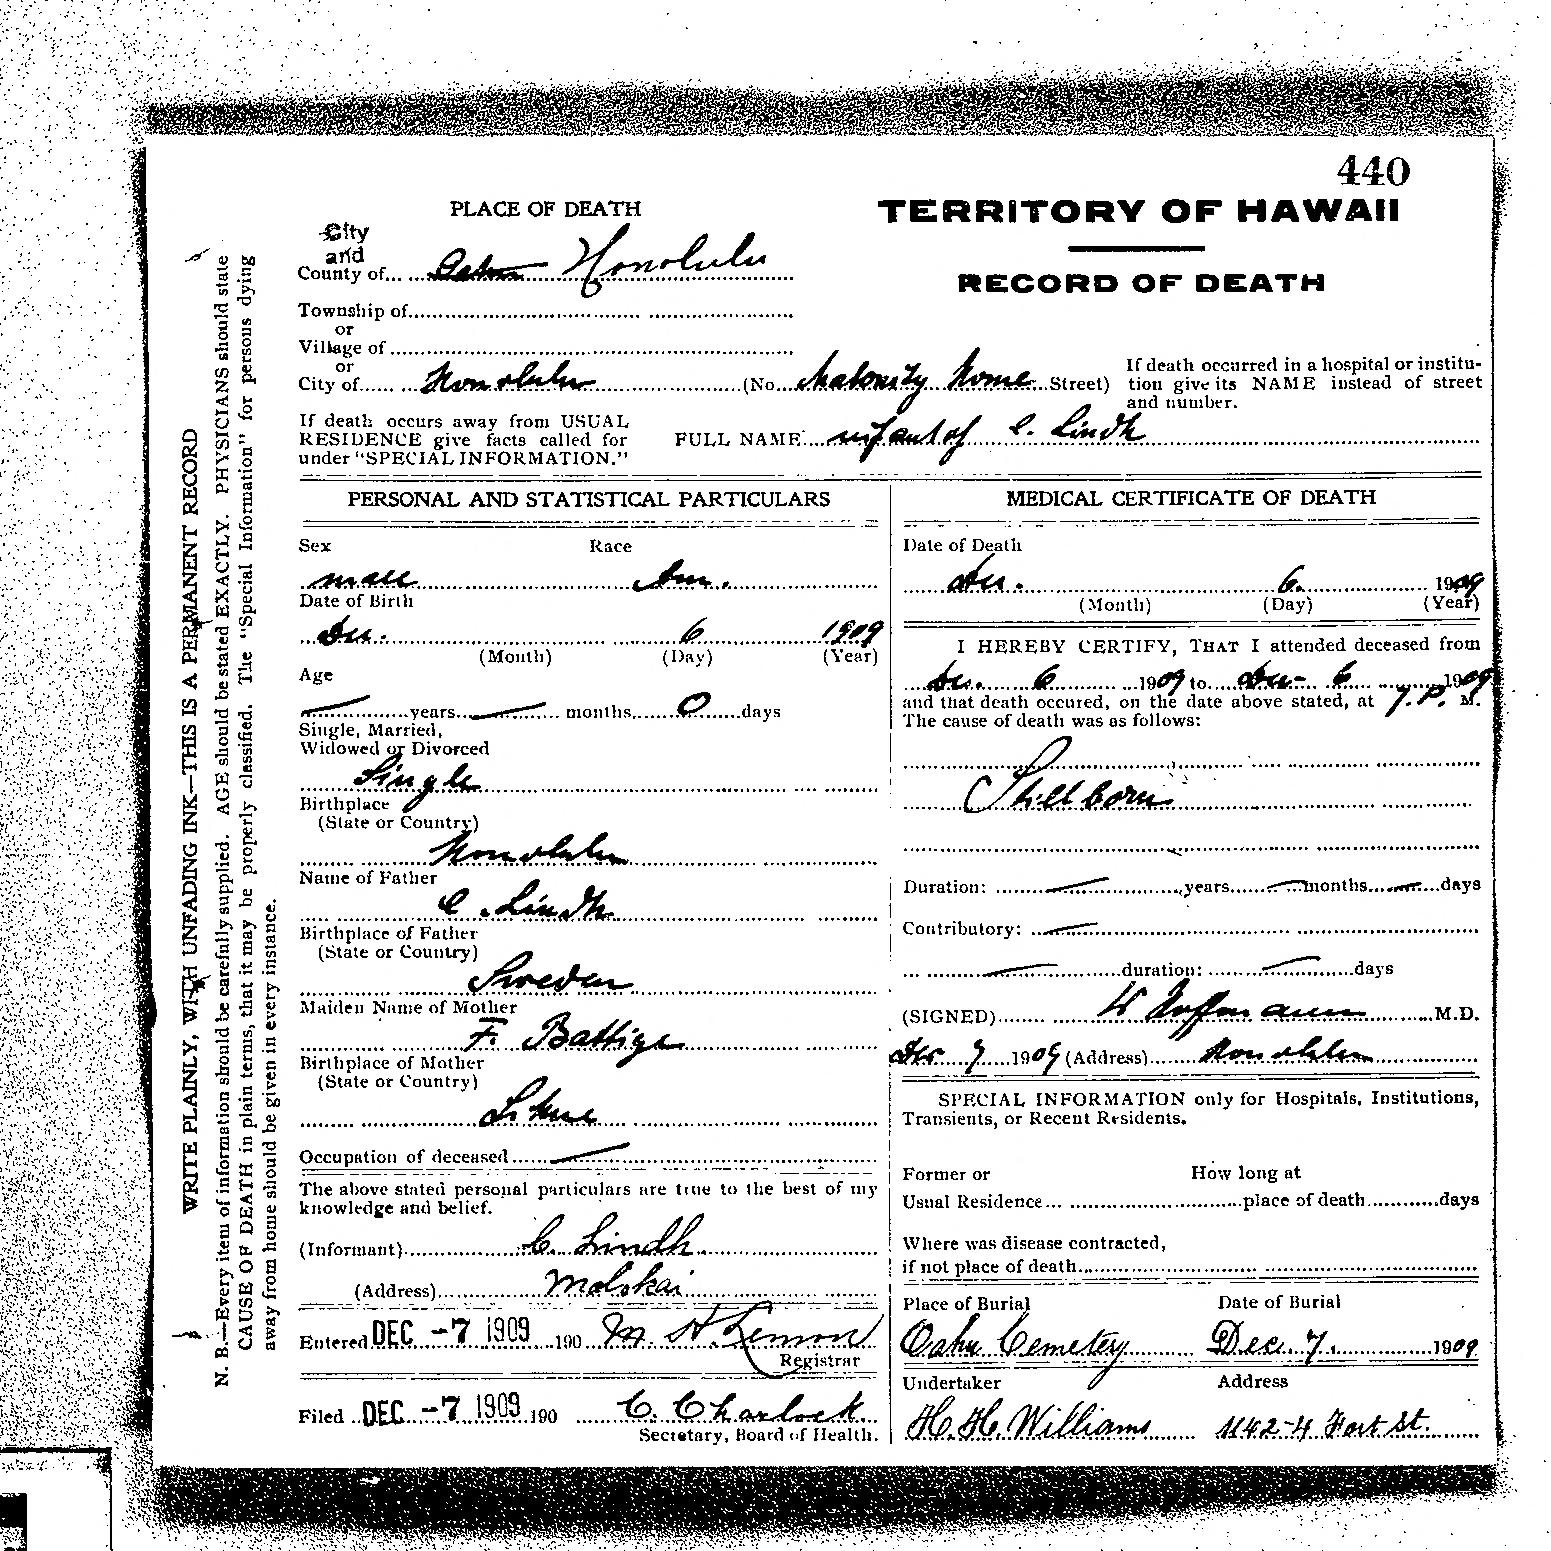 440
TERRITORY OF HAWAII
RECORD OF DEATH
PLACE OF DEATH
City
and
County of... Oahu Honolulu
Township of
or
Village of
or
City of Honolulu (No. Maternity Home Street)
If death occurred in a hospital or institu-
tion give its NAME instead of street
and number.
If death occurs away from USUAL
RESIDENCE give facts called for
under "SPECIAL INFORMATION."
FULL NAME infant of C. Lindh
WRITE PLAINLY, WITH UNFADING INK—THIS IS A PERMANENT RECORD
N. B.—Every item of information should be carefully supplied. AGE should be stated EXACTLY. PHYSICIANS should state
CAUSE OF DEATH in plain terms, that it may be properly classified. The "Special Information" for persons dying
away from home should be given in every instance.
PERSONAL AND STATISTICAL PARTICULARS
Sex Race
male Am.
Date of Birth
Dec. 6 1909
(Month) (Day) (Year)
Age
— years — months 0 days
Single, Married,
Widowed or Divorced
Single
Birthplace
(State or Country)
Honolulu
Name of Father
C. Lindh
Birthplace of Father
(State or Country)
Sweden
Maiden Name of Mother
F. Battige
Birthplace of Mother
(State or Country)
Occupation of deceased —
The above stated personal particulars are true to the best of my
knowledge and belief.
(Informant) C. Lindh
(Address) Molokai
Entered DEC -7 1909 190 M. H. Lemon
Registrar
Filed DEC -7 1909 190 C. Charlock
Secretary, Board of Health.
MEDICAL CERTIFICATE OF DEATH
Date of Death
Dec. 6. 1909
(Month) (Day) (Year)
I HEREBY CERTIFY, THAT I attended deceased from
Dec. 6 1909 to Dec- 6 1909
and that death occured, on the date above stated, at 7.P. M.
The cause of death was as follows:
Stillborn
Duration: — years — months — days
Contributory: —
— duration: — days
(SIGNED) W Hoffmann M.D.
Dec 7 1909 (Address) Honolulu
SPECIAL INFORMATION only for Hospitals, Institutions,
Transients, or Recent Residents.
Former or How long at
Usual Residence place of death days
Where was disease contracted,
if not place of death
Place of Burial Date of Burial
Oahu Cemetery Dec. 7. 1909
Undertaker Address
H. H. Williams 1142-4 Fort St.